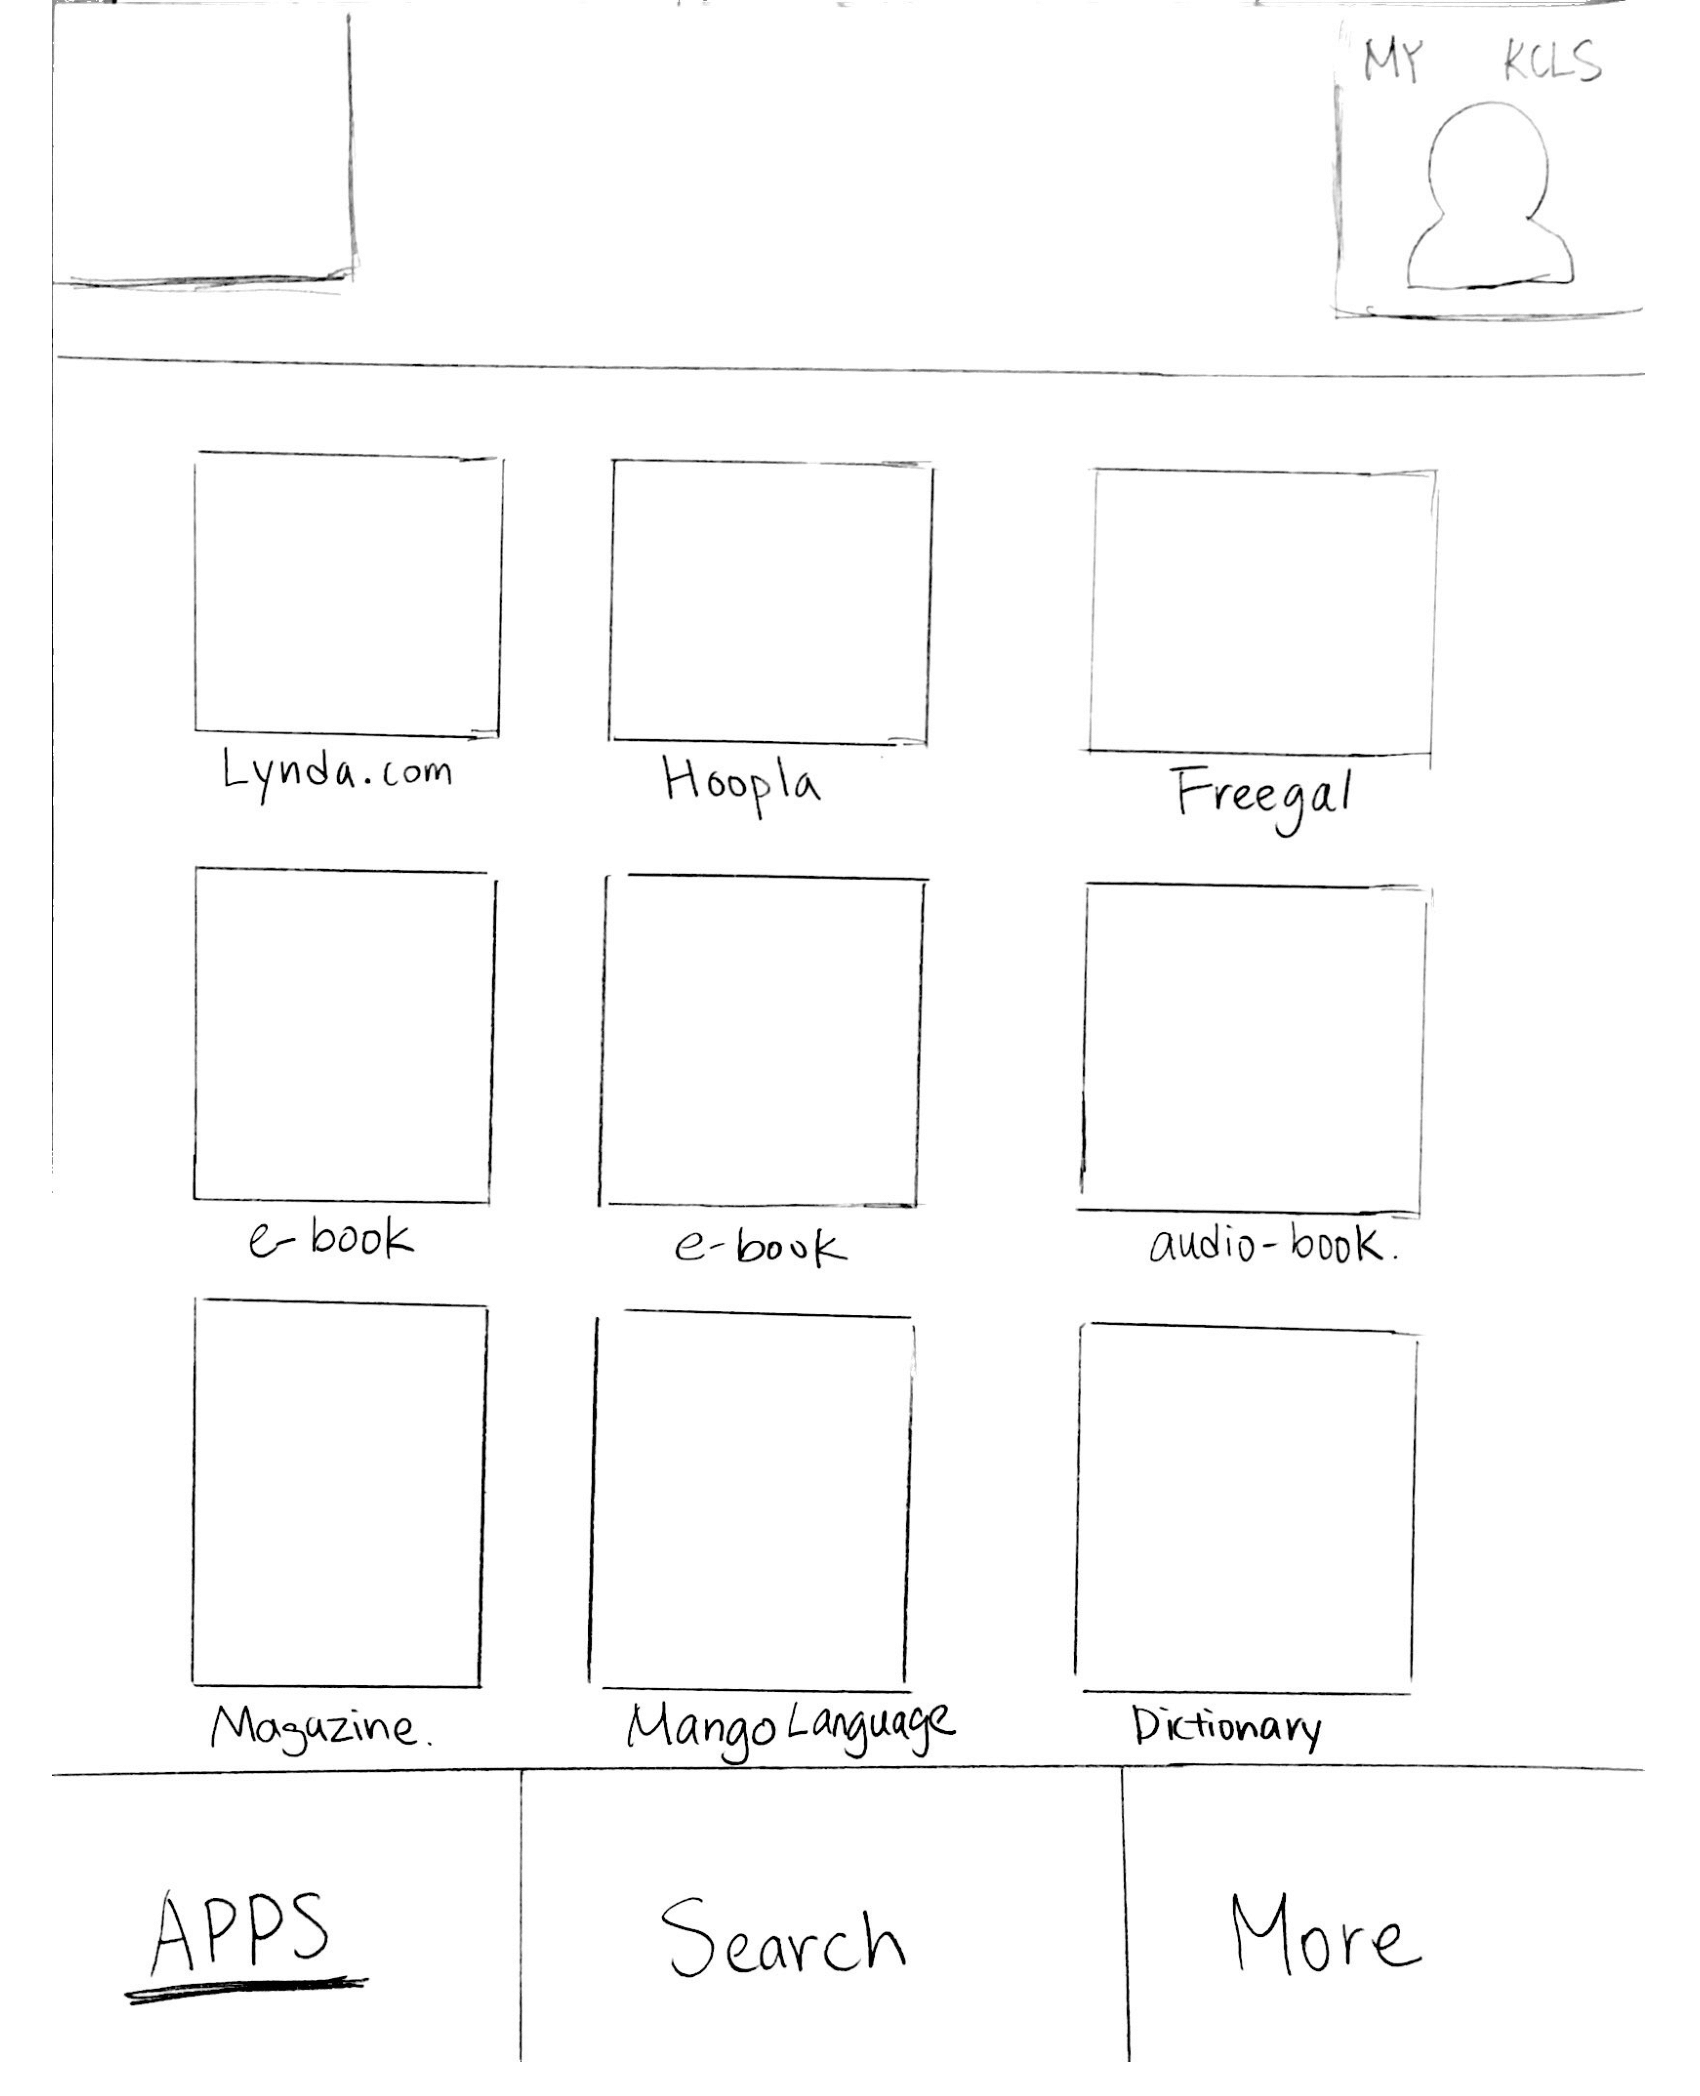 MY KCLS
Lynda.com Hoopla Freegal
e-book e-book audio-book.
Magazine. Mango Language Dictionary
APPS Search More